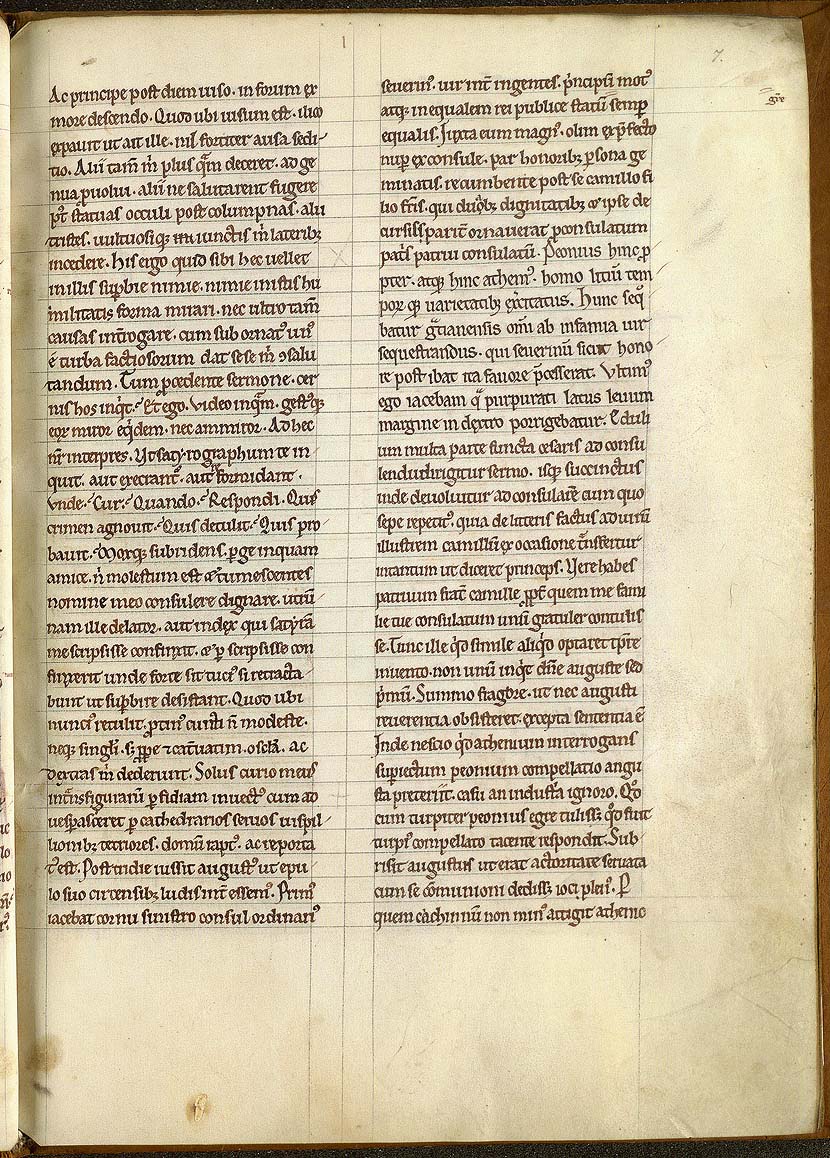 7.
Ac principe post diem uiso. in forum ex
more descendo. Quod ubi uisum est. ilico
expauit ut ait ille. nil fortiter ausa sedi-
tio. Alii tam̄ m̄ plus q̄m deceret. ad ge
nua ꝓuolui. alii ne salutarent fugere
p̄t statuas occuli post columpnas. alii
tristes. uultuosiq; iunctis m̄ laterib;
incedere. his ergo quid sibi hec uellet
in illis sup̄bie nimie. nimie in istis hu
militatis forma mirari. nec ultro tam̄
causas int̄rogare. cum sub ornatꝰ unꝰ
é turba factiosorum dat sese m̄ ꝯsalu
tandum. Tum ꝓcedente sermone. cer
nis hos inq̇t. Et ego. video inq̄m. gestꝰq;
eoꝝ miror eq̇dem. nec ammiror. Ad hec
nr̄ interpres. Vt satyrographum te in
quit. aut execrantꝰ. autͣ formidant.
vnde. Cur. Quando. Respondi. Quis
crimen agnouit. Quis detulit. Quis pro
bauit. Moxq; subridens. ꝑge inquam
amice. n̄ molestum est & tumescentes
nomine meo consulere dignare. utrū
nam ille delator. aut index qui satyrā
me scripsisse confinxit. & ꝑscripsisse con
finxerit unde forte sit tucꝰ si retracta
bunt ut sup̄bire desistant. Quod ubi
nuncꝰ retulit. ꝓtinꝰ cuncti n̄ modeste.
neq; singli. s; ꝓꝑe ⁊ cat̄uatim. oscla. ac
dextras m̄ dederunt. Solus curio meus
int̄nsfiguratū ꝑfidiam inuectꝰ cum ad
uesp̄asceret ꝑ cathedrarios seruos uispil-
lionib; tetriores. domū raptꝰ. ac reporta
tꝰ est. Postridie iussit augustꝰ ut epu
lo suo circensib; ludis int̄essemꝰ. Primꝰ
iacebat cornu sinistro consul ordinariꝰ
seuerinꝰ. uir int̄ ingentes. p̄ncipū motꝰ
atq; inequalem rei publice statū semp̄
equalis. Juxta eum magnꝰ. olim ex p̄fecto
nup̄ ex consule. par honorib; ꝑsona ge
minatis. recumbente post se camillo fi
lio fr̄is. qui duob; dignitatib; & ipse de
cursis ꝑarit̄ ornauerat ꝓconsulatum
pat̄s patrui consulatū. Peonius hinc ꝓ
pter. atq; hinc athenꝰ. homo litiū tem
poꝝ q; uarietatib; ex̄citatus. Hunc seq̄
batur gͣtianensis om̄i ab infamia uir
sequestrandus. qui seuerinū sicut hono
re post ibat ita fauore ꝓcesserat. Vltimꝰ
ego iacebam q̄ purpurati latus leuum
margine in dextro porrigebatur. Eduli
um multa parte functa cesaris ad consu
lem dirigitur sermo. isq; succinctus
inde deuoluitur ad consularē cum quo
sepe repetitꝰ. quia de litteris factus ad uirū
illustrem camillū ex occasione t̄nsfertur
intantum ut diceret princeps. Vere habes
patruum frat̄ camille ꝓpt̄ quem me fami
lie tue consulatum unū gratuler contulis
se. Tunc ille q̇d simile aliq̇d optaret tp̄re
inuento. non unū inq̇t dn̄e auguste sed
p̄mū. Summo fragore. ut nec augusti
reuerentia obsisteret. excepta sententia ē
Inde nescio q̇d athenium interrogans
suꝑiectum peonium compellatio augu
sta preteriit. casu an industͣa ignoro. Qd̄
cum turpiter peonius egre tuliss; q̇d fuit
turpiꝰ compellato tacente respondit. Sub-
risit augustus ut erat actoritate seruata
cum se cōmunioni dediss; ioci plenꝰ. Ꝑ
quem cachinnū non minꝰ attigit athenio